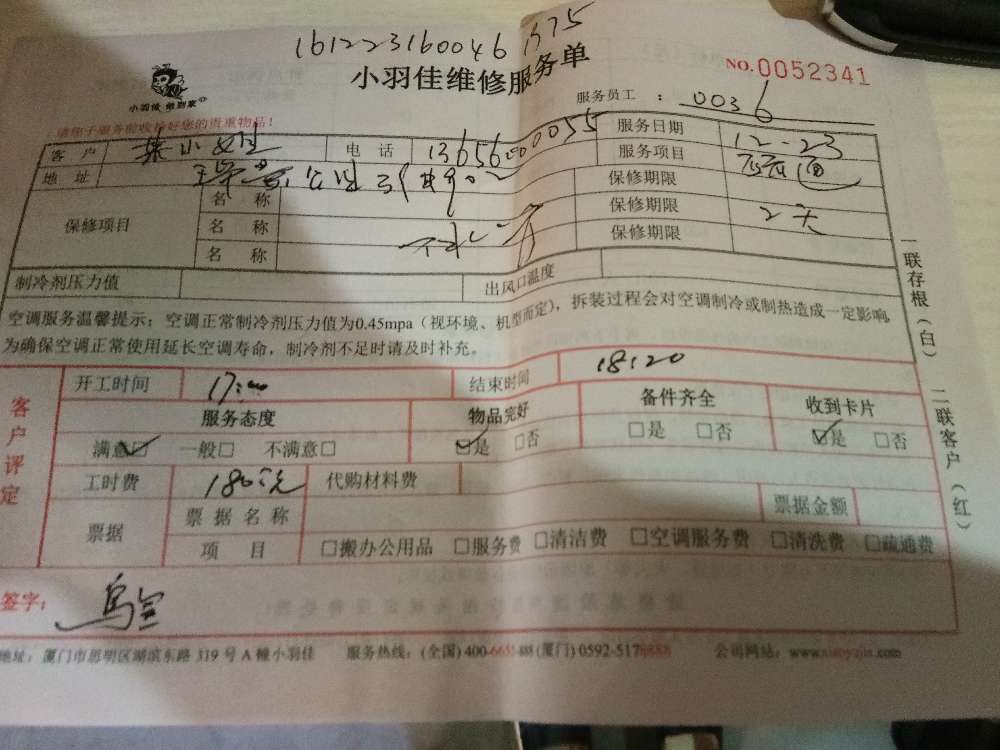 161223160046
小羽佳维修服务单
NO.0052341
小羽佳 做到家
服务员工 : 0036
请您于服务前收检好您的贵重物品!
客户 小 电话 服务日期 12-23
地址 服务项目 通
保修项目 名称 保修期限
名称 保修期限 2天
名称 保修期限
制冷剂压力值 出风口温度
空调服务温馨提示:空调正常制冷剂压力值为0.45mpa(视环境、机型而定),拆装过程会对空调制冷或制热造成一定影响,
为确保空调正常使用延长空调寿命,制冷剂不足时请及时补充。
客户评定
开工时间 17:00 结束时间 18:20
服务态度 物品完好 备件齐全 收到卡片
满意☑ 一般□ 不满意□ ☑是 □否 □是 □否 ☑是 □否
工时费 180元 代购材料费
票据 票据名称 票据金额
项目 □搬办公用品 □服务费 □清洁费 □空调服务费 □清洗费 □疏通费
签字:
地址:厦门市思明区湖滨东路319号A幢小羽佳 服务热线:(全国)400- (厦门)0592- 公司网站:
一联存根(白) 二联客户(红)